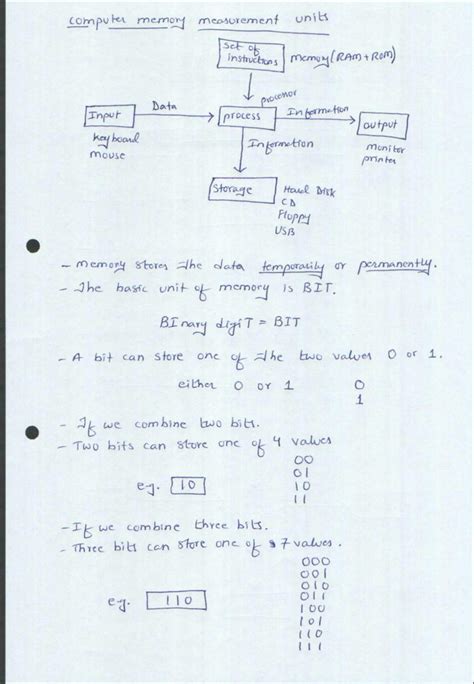 computer memory measurement units
set of
instructions
memory (RAM + ROM)
processor
Input
Data
process
Information
output
keyboard
mouse
Information
monitor
printer
Storage
Hard Disk
CD
Floppy
USB
- memory stores the data temporarily or permanently.
- The basic unit of memory is BIT.
BInary digiT = BIT
- A bit can store one of the two values 0 or 1.
either 0 or 1
0
1
- If we combine two bits.
- Two bits can store one of 4 values
00
01
e.g. 10
10
11
- If we combine three bits.
- Three bits can store one of 7 values.
000
001
010
011
e.g. 110
100
101
110
111